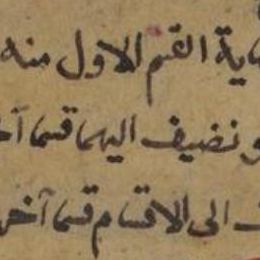 اية القسم الاول منه
و نضيف اليهما قسما آخر
الى الاقسام قسما آخر